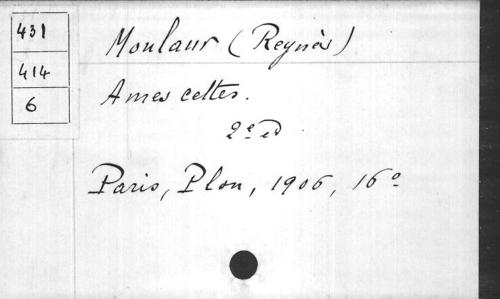 431
414
6
Moulaur (Reynès)
Ames celtes.
2e ed
Paris, Plon, 1906, 16o